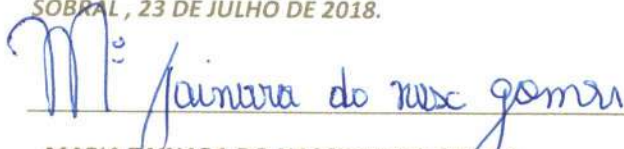 SOBRAL , 23 DE JULHO DE 2018.
Mª Jainara do nasc gomes
MARIA